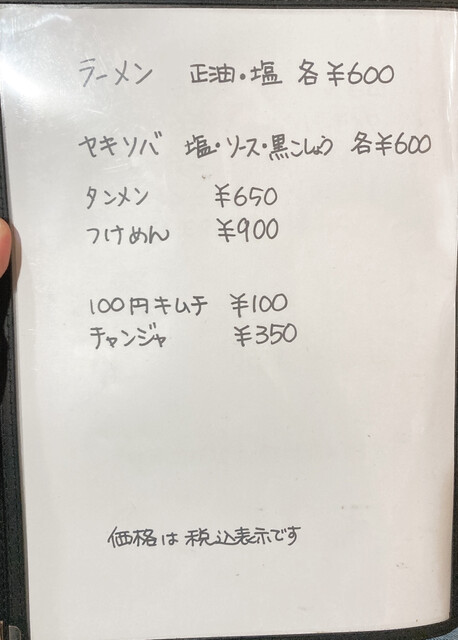 ラーメン 正油・塩 各¥600
ヤキソバ 塩・ソース・黒こしょう 各¥600
タンメン ¥650
つけめん ¥900
100円キムチ ¥100
チャンジャ ¥350
価格は税込表示です